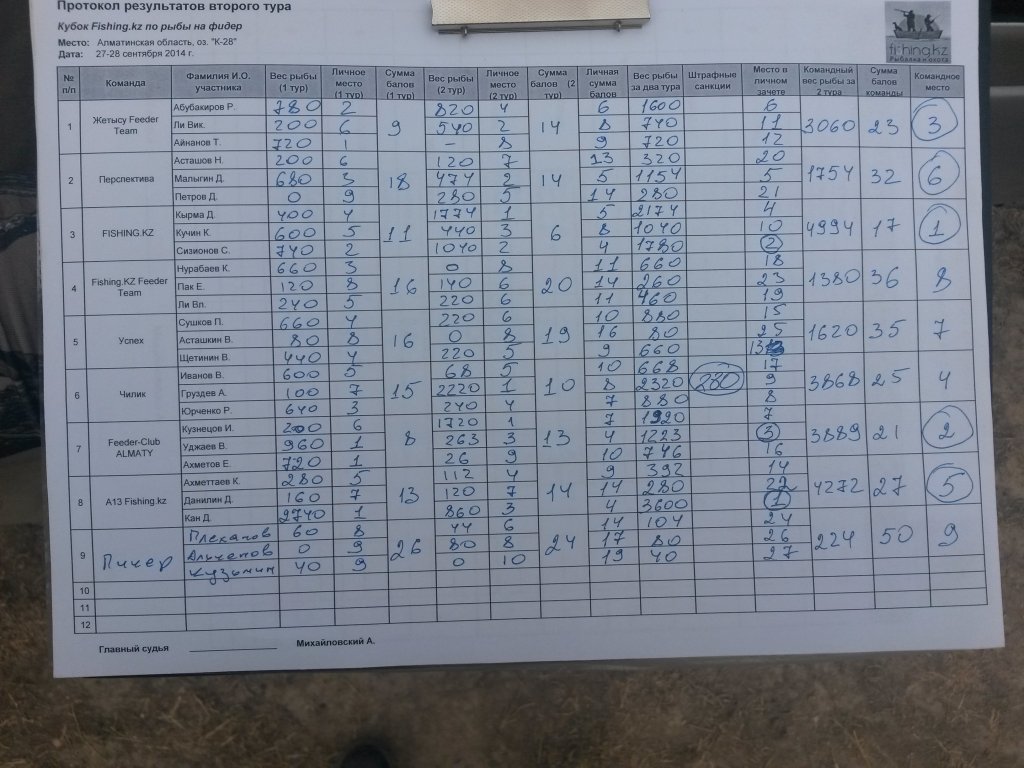 Протокол результатов второго тура
Кубок Fishing.kz по рыбы на фидер
Место: Алматинская область, оз. "К-28"
Дата: 27-28 сентября 2014 г.
fishing.kz
Рыбалка и охота
№ п/п Команда Фамилия И.О. участника Вес рыбы (1 тур) Личное место (1 тур) Сумма балов (1 тур) Вес рыбы (2 тур) Личное место (2 тур) Сумма балов (2 тур) Личная сумма балов Вес рыбы за два тура Штрафные санкции Место в личном зачете Командный вес рыбы за 2 тура Сумма балов команды Командное место
1 Жетысу Feeder Team Абубакиров Р. 780 2 9 820 4 14 6 1600 6 3060 23 3
Ли Вик. 200 6 540 2 8 740 11
Айнанов Т. 720 1 – 8 9 720 12
2 Перспектива Асташов Н. 200 6 18 120 7 14 13 320 20 1754 32 6
Малыгин Д. 680 3 474 2 5 1154 5
Петров Д. 0 9 280 5 14 280 21
3 FISHING.KZ Кырма Д. 400 4 11 1774 1 6 5 2174 4 4994 17 1
Кучин К. 600 5 440 3 8 1040 10
Сизионов С. 740 2 1040 2 4 1780 2
4 Fishing.KZ Feeder Team Нурабаев К. 660 3 16 0 8 20 11 660 18 1380 36 8
Пак Е. 120 8 140 6 14 260 23
Ли Вл. 240 5 220 6 11 460 19
5 Успех Сушков П. 660 4 16 220 6 19 10 880 15 1620 35 7
Асташкин В. 80 8 0 8 16 80 25
Щетинин В. 440 4 220 5 9 660 13
6 Чилик Иванов В. 600 5 15 68 5 10 10 668 17 3868 25 4
Груздев А. 100 7 2220 1 8 2320 280 9
Юрченко Р. 640 3 240 4 7 880 8
7 Feeder-Club ALMATY Кузнецов И. 200 6 8 1720 1 13 7 1920 7 3889 21 2
Уджаев В. 960 1 263 3 4 1223 3
Ахметов Е. 720 1 26 9 10 746 16
8 А13 Fishing.kz Ахметтаев К. 280 5 13 112 4 14 9 392 14 4272 27 5
Данилин Д. 160 7 120 7 14 280 22
Кан Д. 2740 1 860 3 4 3600 1
9 Пичер Плеханов 60 8 26 44 6 24 14 104 24 224 50 9
0 9 80 8 17 80 26
Кузьмин 40 9 0 10 19 40 27
10
11
12
Главный судья Михайловский А.